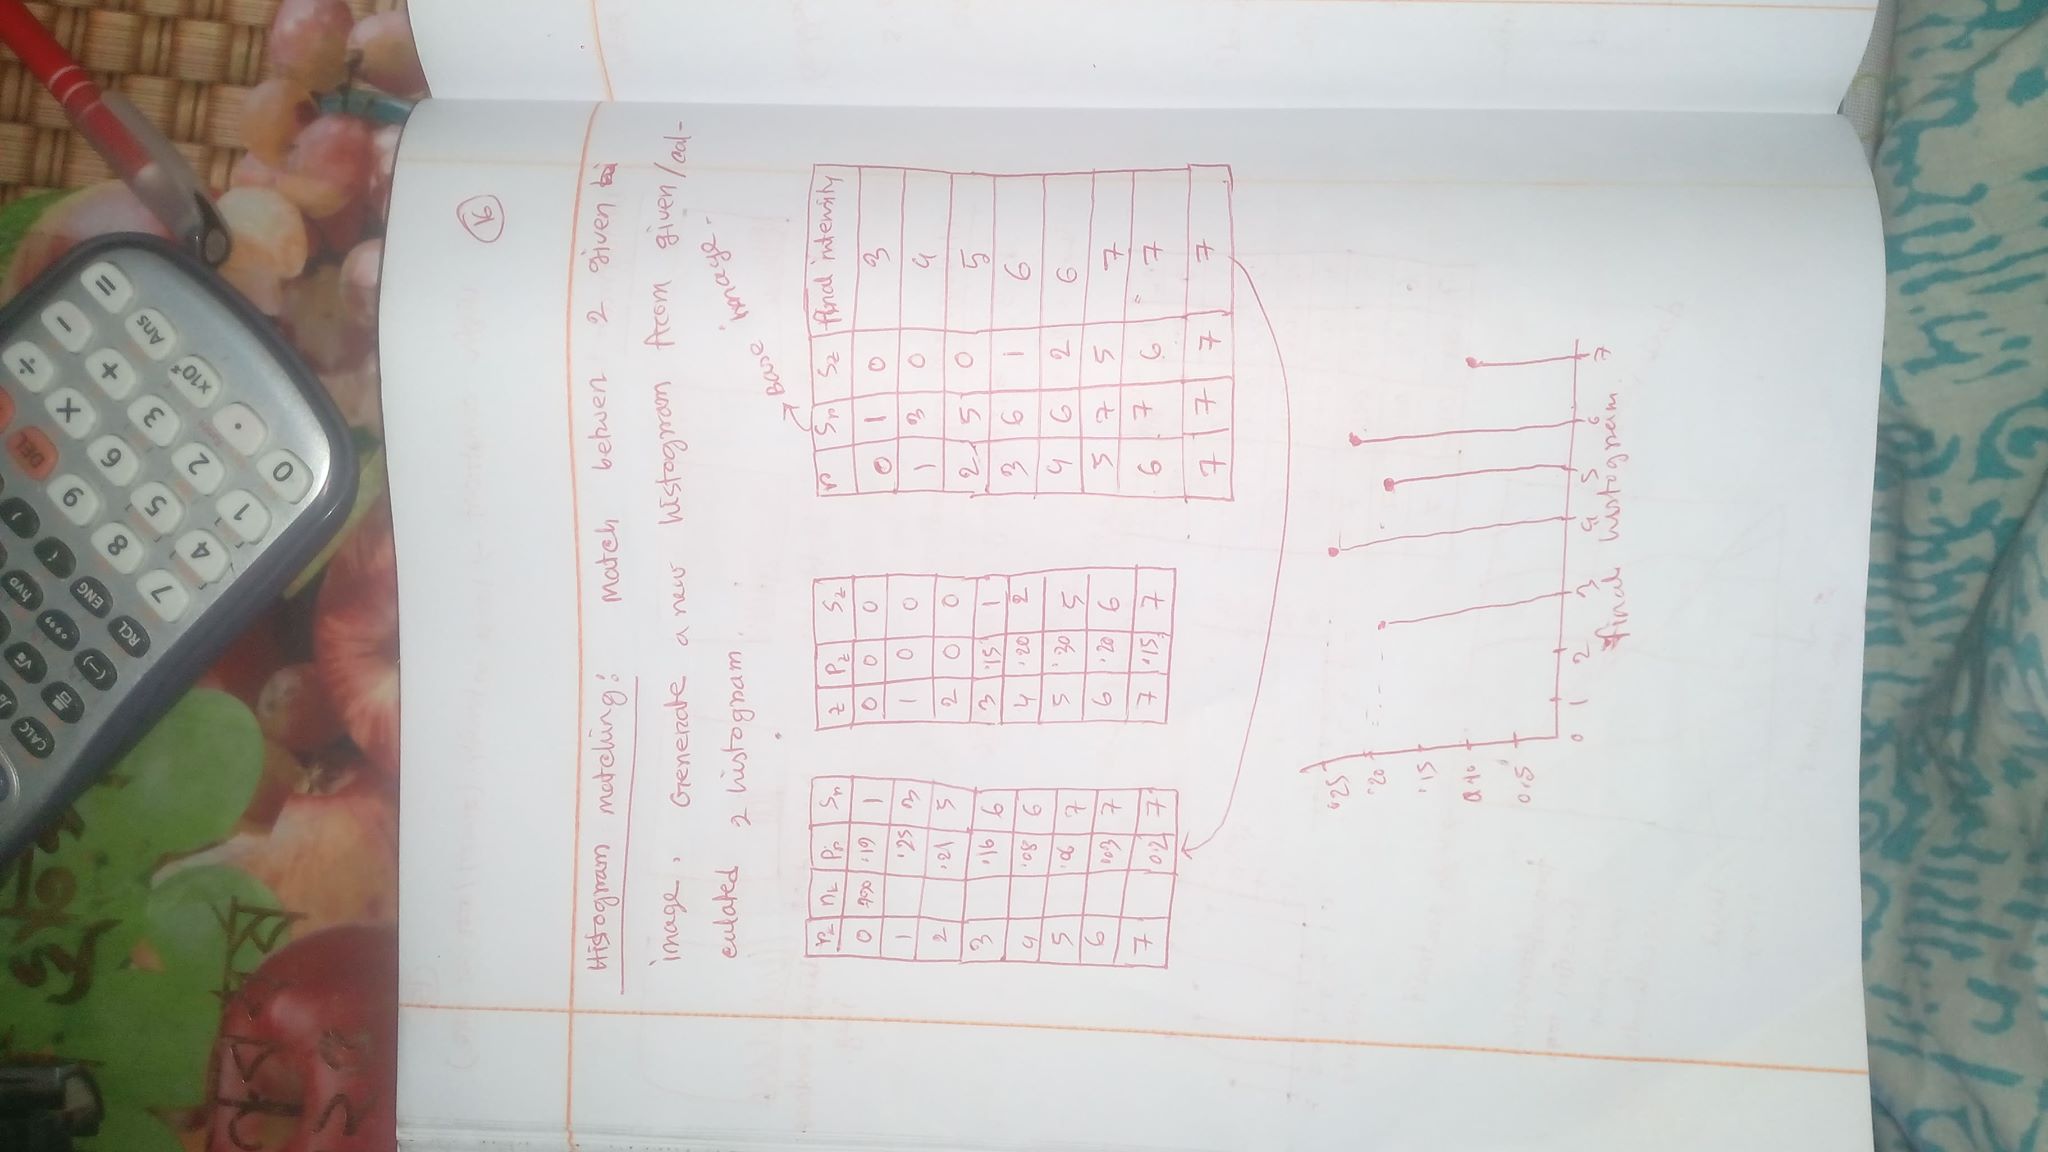 16
Histogram matching: match betwen 2 given
image. Generate a new histogram from given/cal-
culated 2 histogram.
Base image.
r_k n_k P_r S_r
0 790 .19 1
1 .25 3
2 .21 5
3 .16 6
4 .08 6
5 .06 7
6 .03 7
7 0.2 7
z P_z S_z
0 0 0
1 0 0
2 0 0
3 .15 1
4 .20 2
5 .30 5
6 .20 6
7 .15 7
r S_r S_z final intensity
0 1 0 3
1 3 0 4
2 5 0 5
3 6 1 6
4 6 2 6
5 7 5 7
6 7 6 7
7 7 7 7
.25
.20
.15
0.10
0.5
0 1 2 3 4 5 6 7
final histogram.
CALC
RCL ENG hyp
(-) °'"
7 8 9 DEL
4 5 6 × ÷
1 2 3 + −
0 . ×10ˣ Ans =